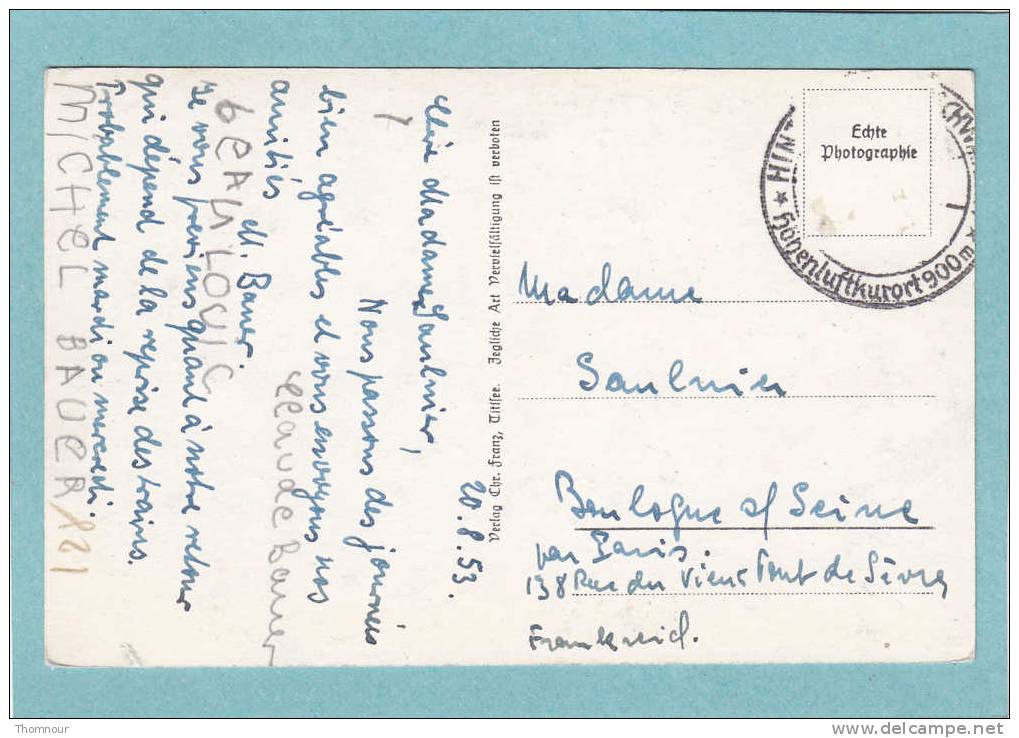 20.8.53.
Chère Madame Saulnier,
Nous passons des journées
bien agréables et vous envoyons nos
amitiés
M. Bauer.
Claude Bauer
Je vous previens quand à notre retour
qui dépend de la reprise des trains.
Probablement mardi ou mercredi.
MICHEL BAUER
Verlag Chr. Franz, Titisee. Jegliche Art Vervielfältigung ist verboten
Echte
Photographie
HINT
Höhenluftkurort 900m
Madame
Saulnier
Boulogne s/ Seine
par Paris.
138 Rue du Vieux Pont de Sèvres
Frankreich.
Thomnour
http://www.delcampe.net